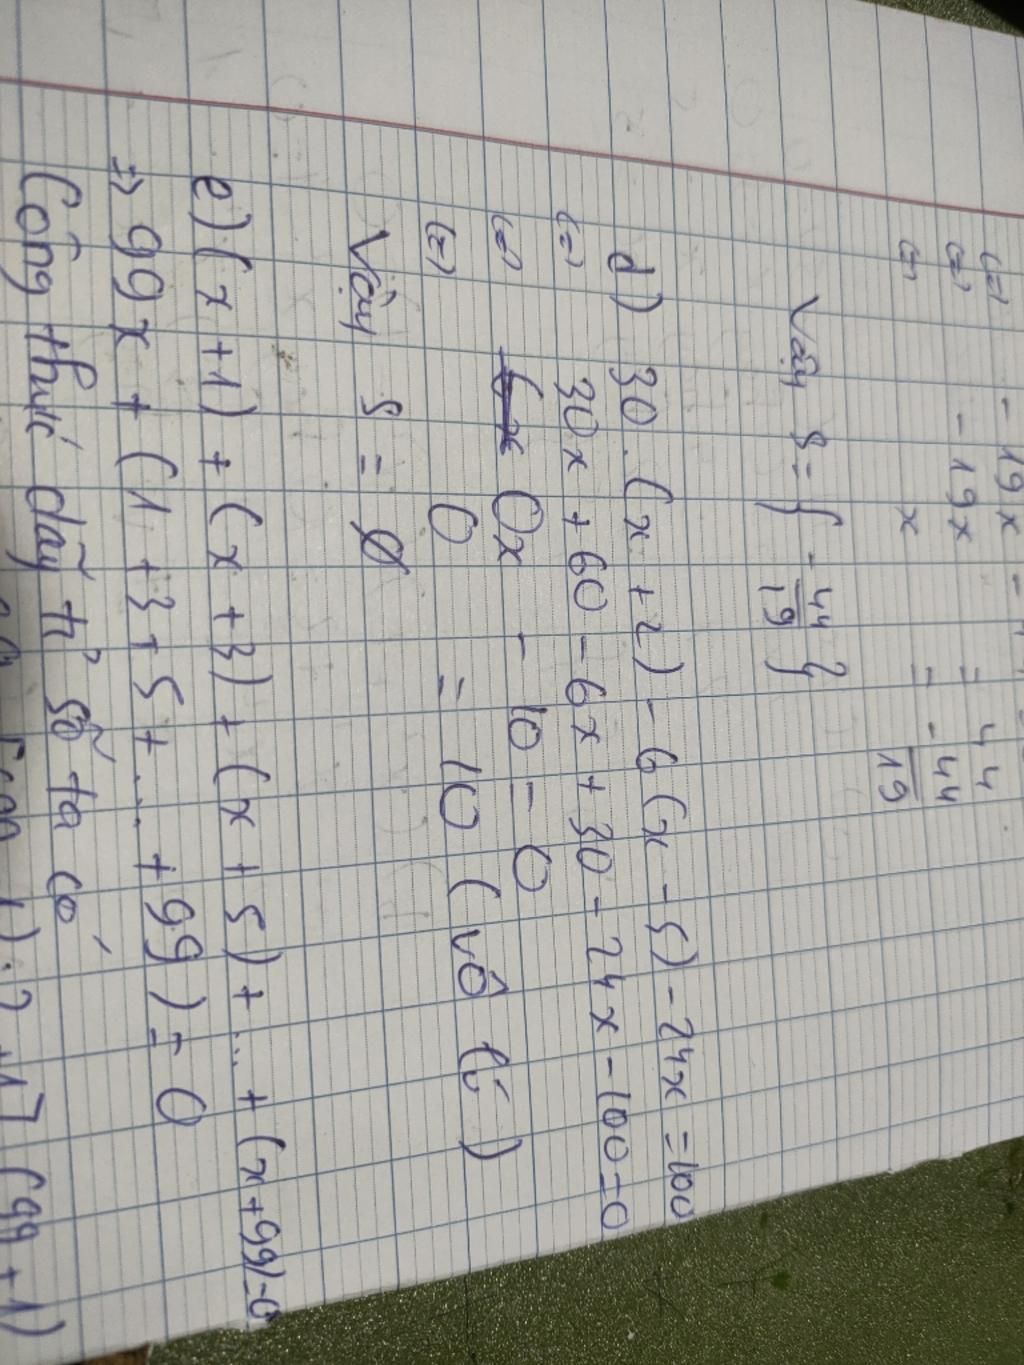 (=) - 19x -
(=) - 19x = 44
(=) x = - 44/19
Vậy S = { - 44/19 }
d) 30 . (x + 2) - 6 (x - 5) - 24x = 100
(=) 30x + 60 - 6x + 30 - 24x - 100 = 0
(=) 0x - 10 = 0
(=) 0 = 10 ( vô lí )
Vậy S = ∅
e) (x + 1) + (x + 3) + (x + 5) + ... + (x + 99) = 0
=> 99x + (1 + 3 + 5 + ... + 99) = 0
Công thức dãy tỉ số ta có
1) : 2 + 1] (99 + 1)